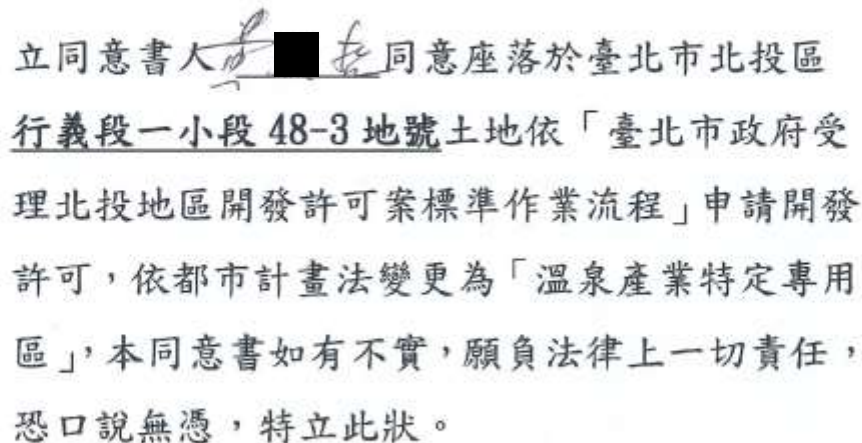 立同意書人 同意座落於臺北市北投區
行義段一小段 48-3 地號土地依「臺北市政府受
理北投地區開發許可案標準作業流程」申請開發
許可，依都市計畫法變更為「溫泉產業特定專用
區」，本同意書如有不實，願負法律上一切責任，
恐口說無憑，特立此狀。